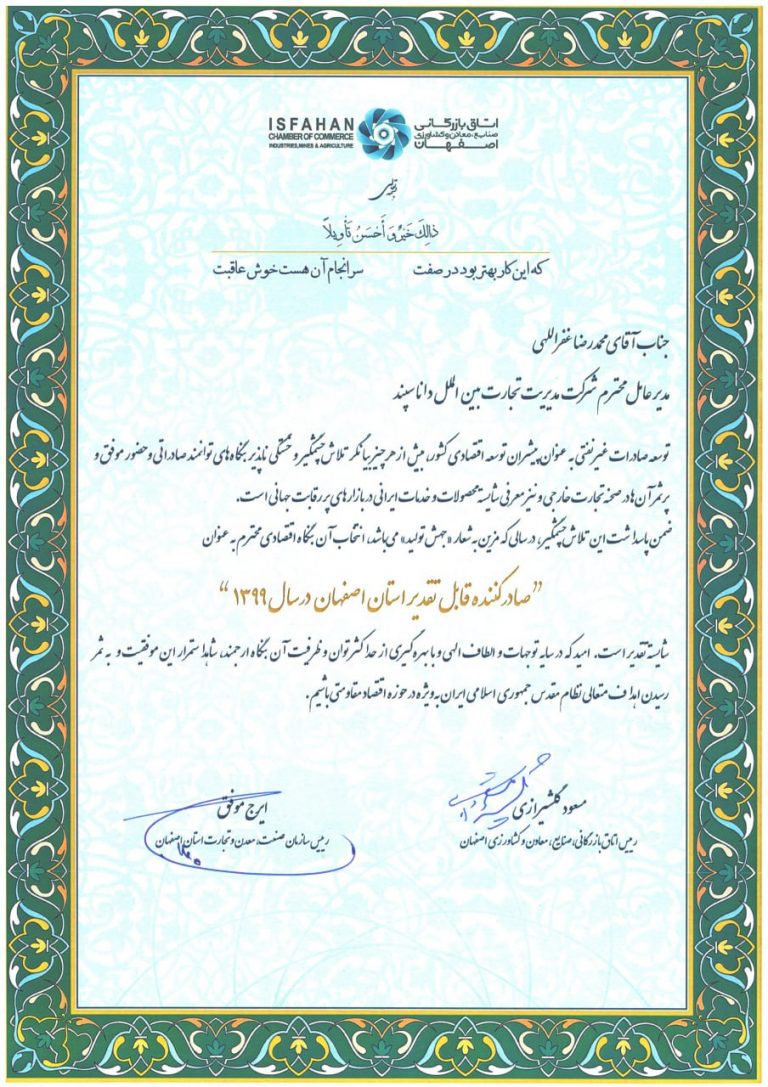 ISFAHAN
CHAMBER OF COMMERCE
INDUSTRIES, MINES & AGRICULTURE
اتاق بازرگانی
صنایع، معادن و کشاورزی
اصفهان
ذالِكَ خَيْرٌ وَ أَحْسَنُ تَأْوِيلاً
که این کار بهتر بود در صفت سرانجام آن هست خوش عاقبت
جناب آقای محمدرضا غفراللهی
مدیرعامل محترم شرکت مدیریت تجارت بین الملل دانا سپند
توسعه صادرات غیرنفتی به عنوان پیشران توسعه اقتصادی کشور، بیش از هر چیز بیانگر تلاش چشمگیر و خستگی ناپذیر بنگاه های توانمند صادراتی و حضور موفق و
پرثمر آن ها در صحنه تجارت خارجی و نیز معرفی شایسته محصولات و خدمات ایرانی در بازارهای پر رقابت جهانی است.
ضمن پاسداشت این تلاش چشمگیر، در سالی که مزین به شعار «جهش تولید» می باشد، انتخاب آن بنگاه اقتصادی محترم به عنوان
”صادرکننده قابل تقدیر استان اصفهان در سال ۱۳۹۹“
شایسته تقدیر است. امید که در سایه توجهات و الطاف الهی و با بهره گیری از حداکثر توان و ظرفیت آن بنگاه ارجمند، شاهد استمرار این موفقیت و به ثمر
رسیدن اهداف متعالی نظام مقدس جمهوری اسلامی ایران به ویژه در حوزه اقتصاد مقاومتی باشیم.
مسعود گلشیرازی
رییس اتاق بازرگانی، صنایع، معادن و کشاورزی اصفهان
ایرج موفق
رییس سازمان صنعت، معدن و تجارت استان اصفهان